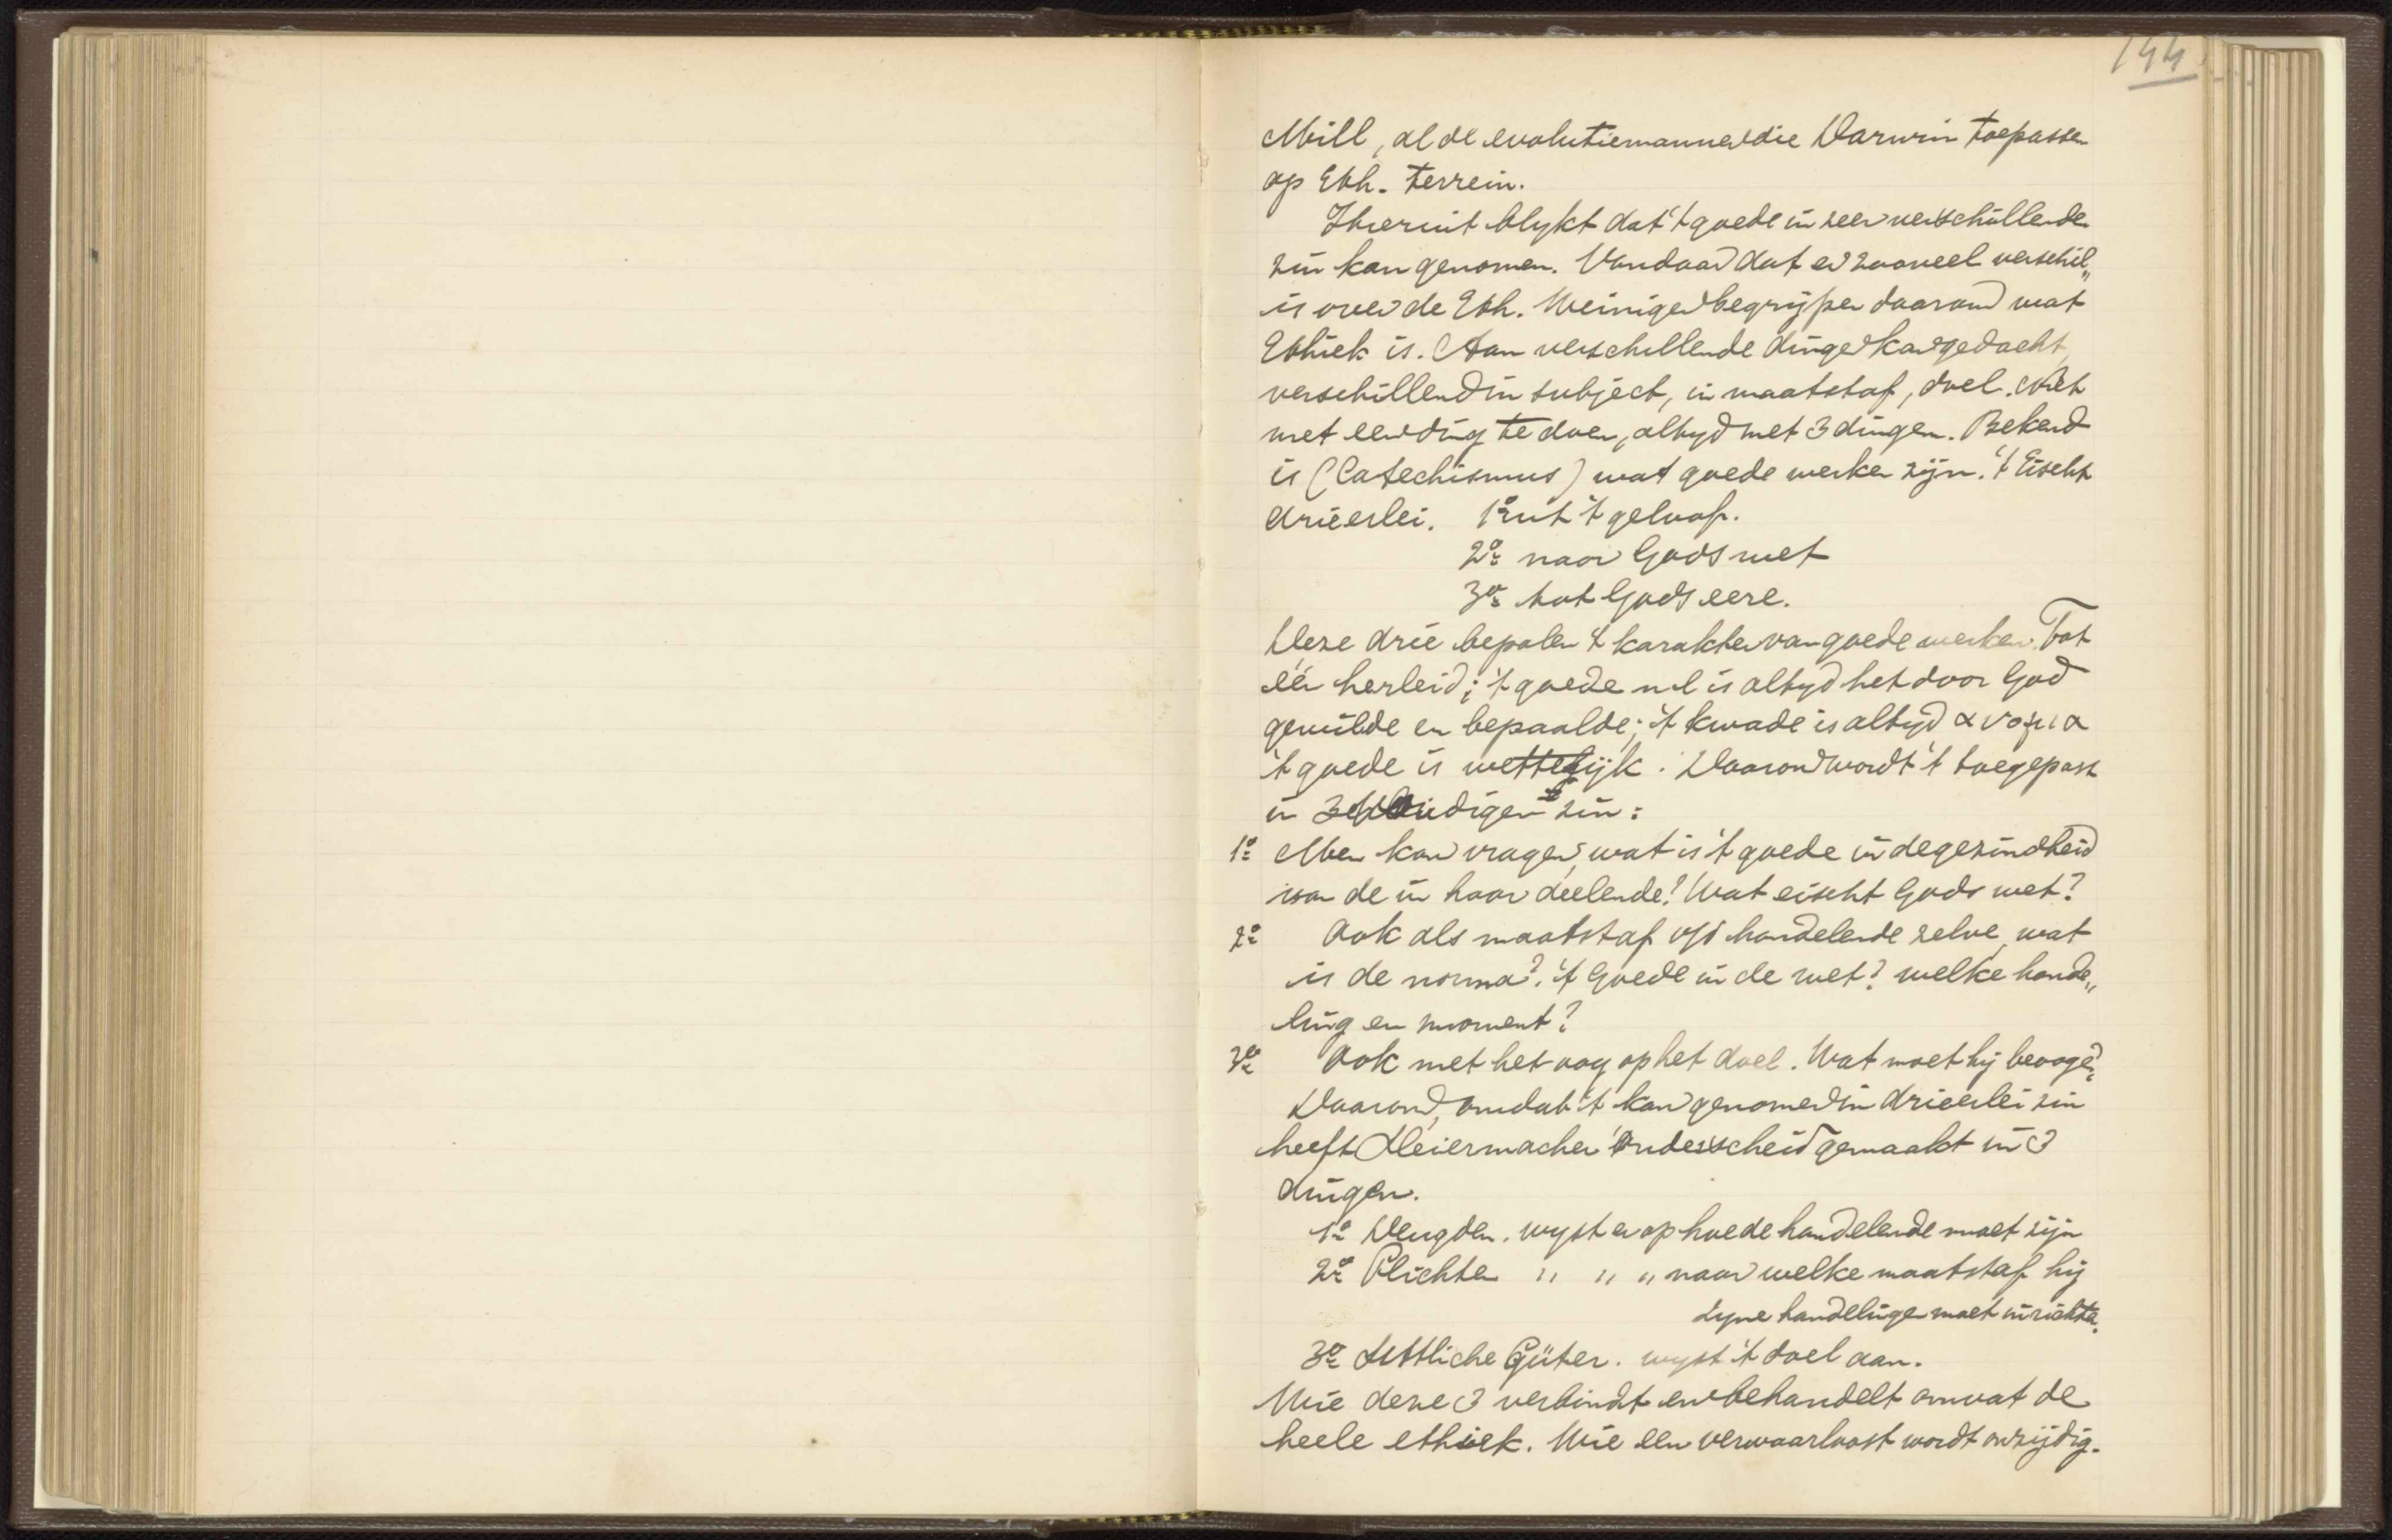 144
Mill, al de evolutiemannen die Darwin toepassen
op Eth. terrein.
Hieruit blykt dat 't goede in zeer verschillenden
zin kan genomen. Vandaar dat er zooveel verschil„
is over de Eth. Weinigen begrijpen daarom wat
Ethiek is. Aan verschillende dingen kan gedacht,
verschillend in subject, in maatstaf, doel. Niet
met een ding te doen, altyd met 3 dingen. Bekend
is (Catechismus) wat goede werken zijn. 't Eischt
drieerlei. 1º uit 't geloof.
2º naar Gods wet
3º tot Gods eere.
Deze drie bepalen 't karakter van goede werken. Tot
één herleid; 't goede nl is altyd het door God
gewilde en bepaalde; 't kwade is altyd ανομια
't goede is wettelijk. Daarom wordt 't toegepast
in 3 zin:
1º Men kan vragen, wat is 't goede in de gezindheid
van de in haar deelende? Wat eischt Gods wet?
2º Ook als maatstaf v/d handelende zelve, wat
is de norma? 't Goede in de wet? welke hande„
ling en moment?
3º Ook met het oog op het doel. Wat moet hij beoogen?
Daarom, omdat 't kan genomen in drieerlei zin
heeft Sleiermacher onderscheid gemaakt in 3
dingen.
1º Deugden. wyst er op hoe de handelende moet zijn
2º Plichten " " " naar welke maatstaf hij
zyne handelingen moet inrichten.
3º Sittliche Güter. wyst 't doel aan.
Wie deze 3 verbindt en behandelt omvat de
heele ethiek. Wie een verwaarloost wordt onzijdig.